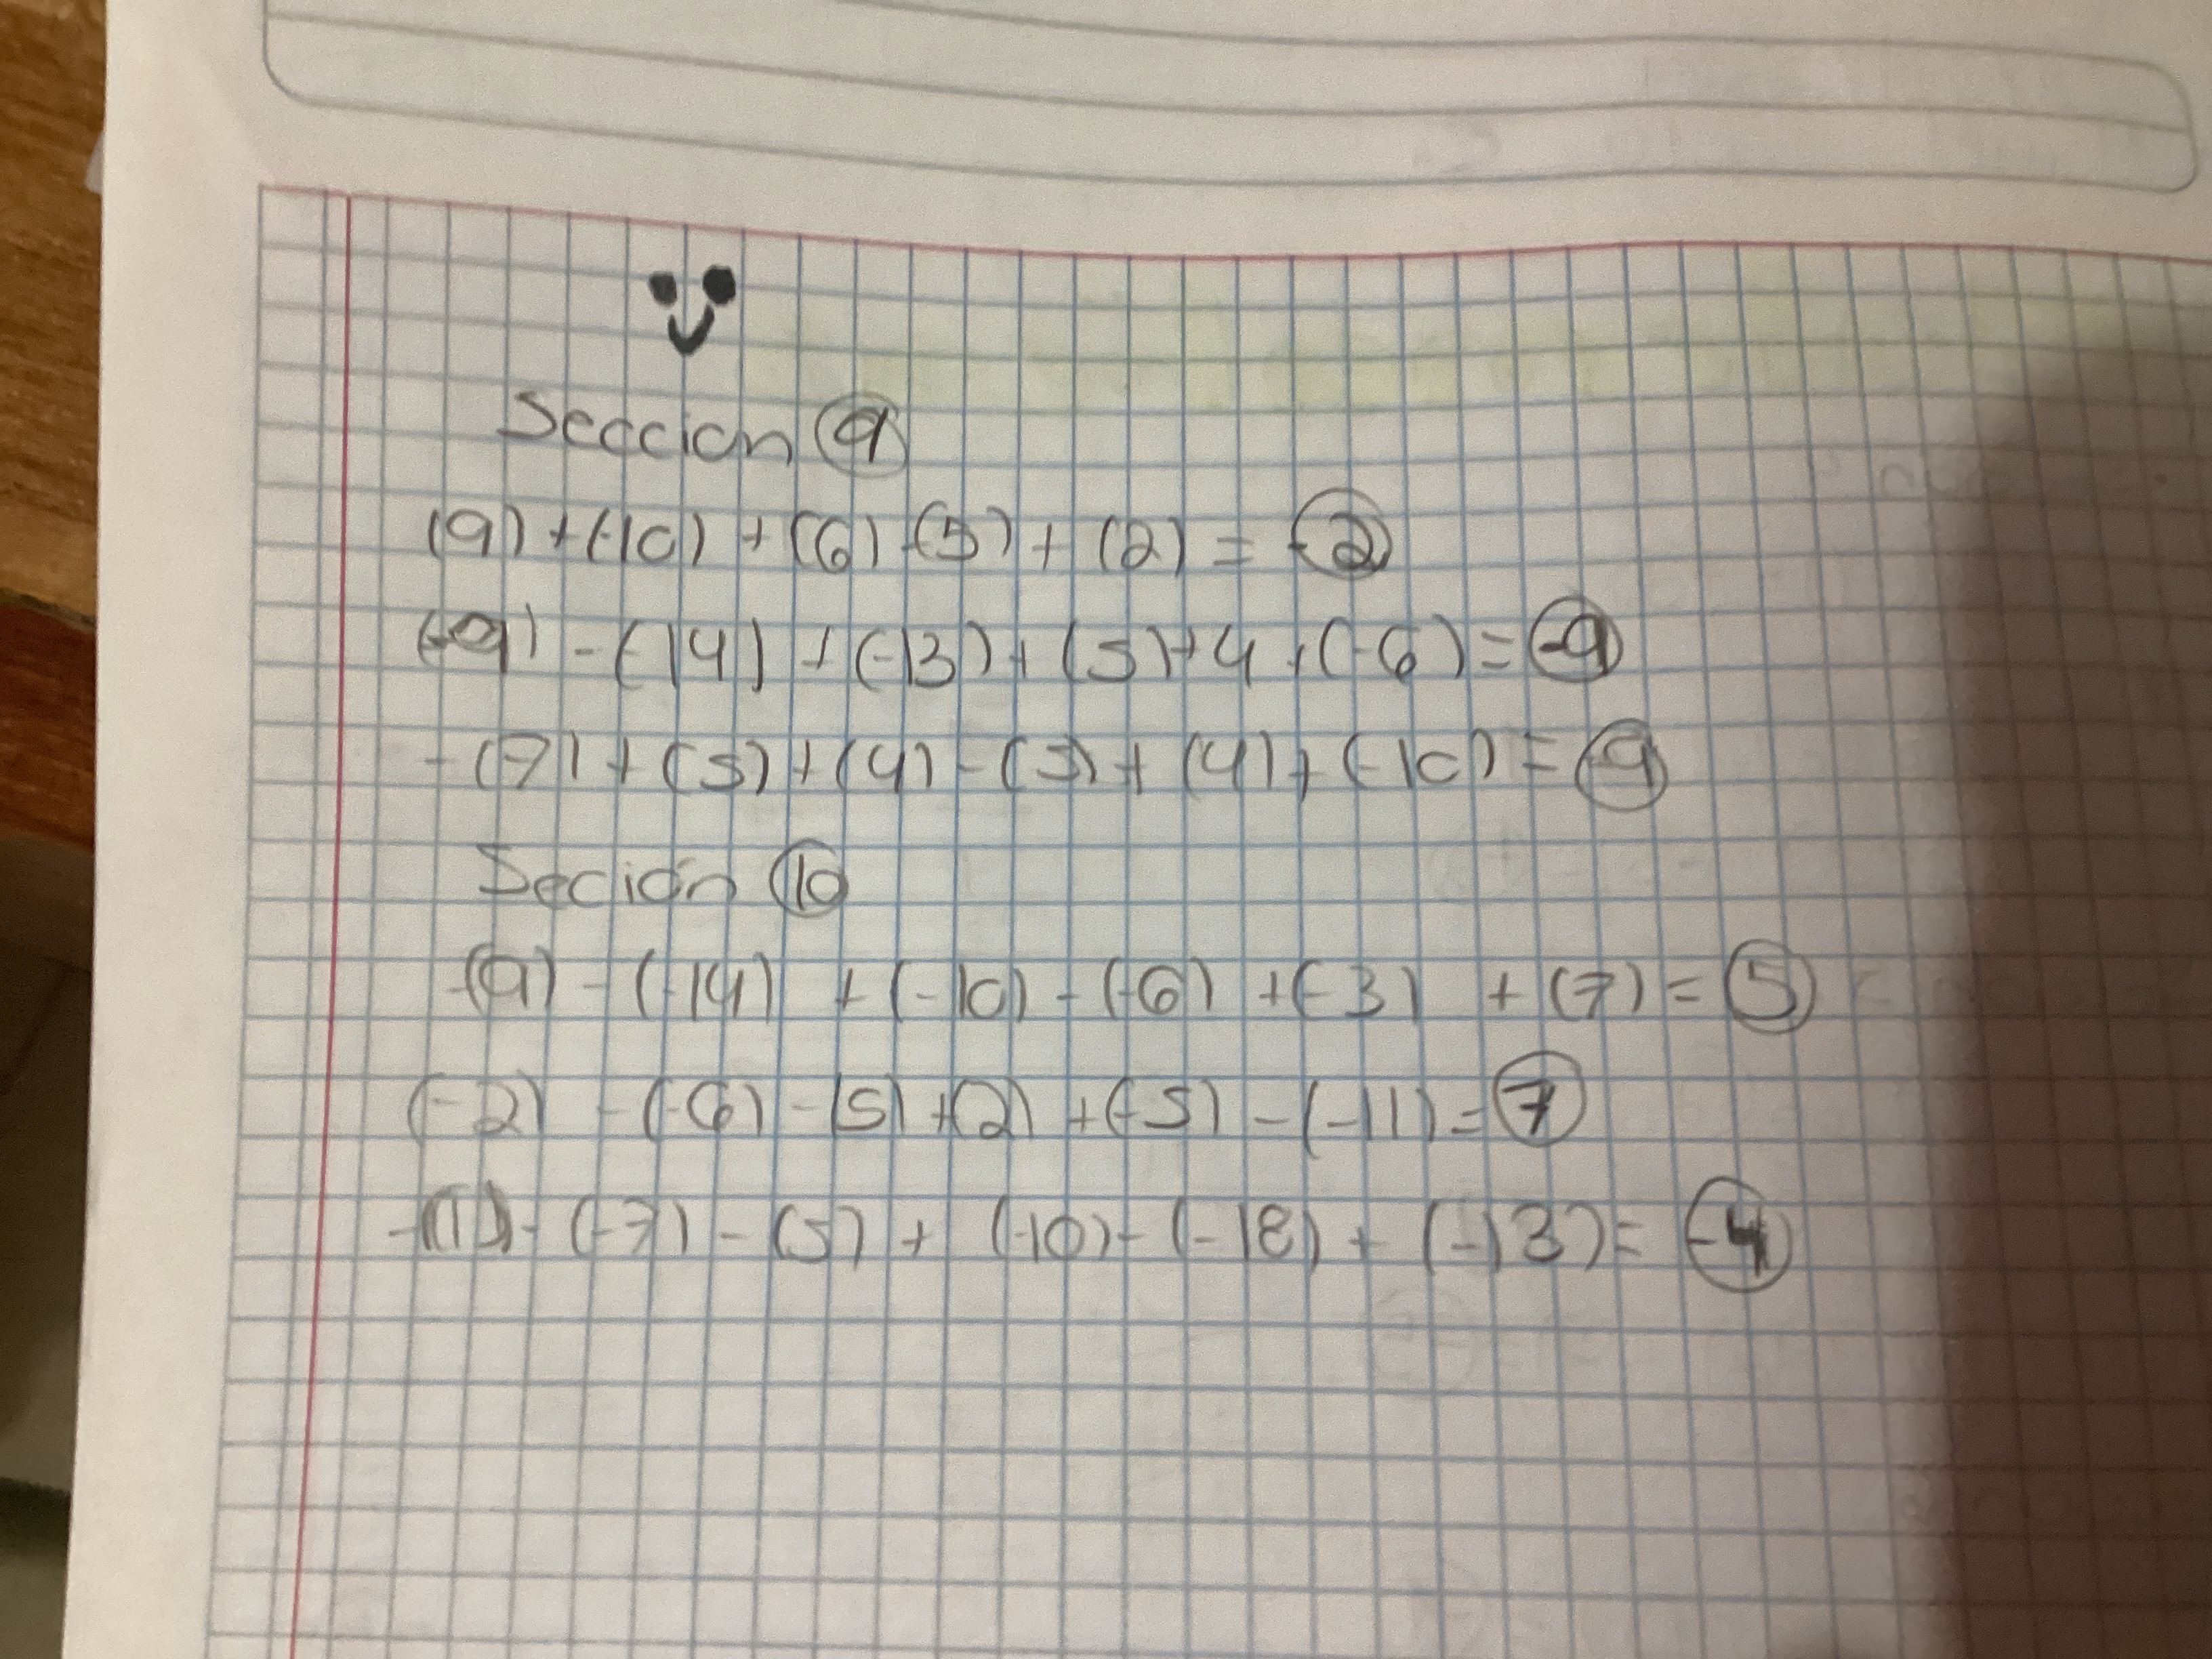 Seccion 9
(9) + (-10) + (6) - (5) + (2) = 2
(-9) - (-14) + (-13) + (5) + 4 + (-6) = -9
- (7) + (5) + (4) - (5) + (4) + (-10) = -9
Seción 10
-(9) - (-14) + (-10) - (-6) + (-3) + (7) = 5
(-2) - (-6) - (5) + (2) + (-5) - (-11) = 7
-(1) - (-7) - (5) + (-10) - (-18) + (-13) = -4